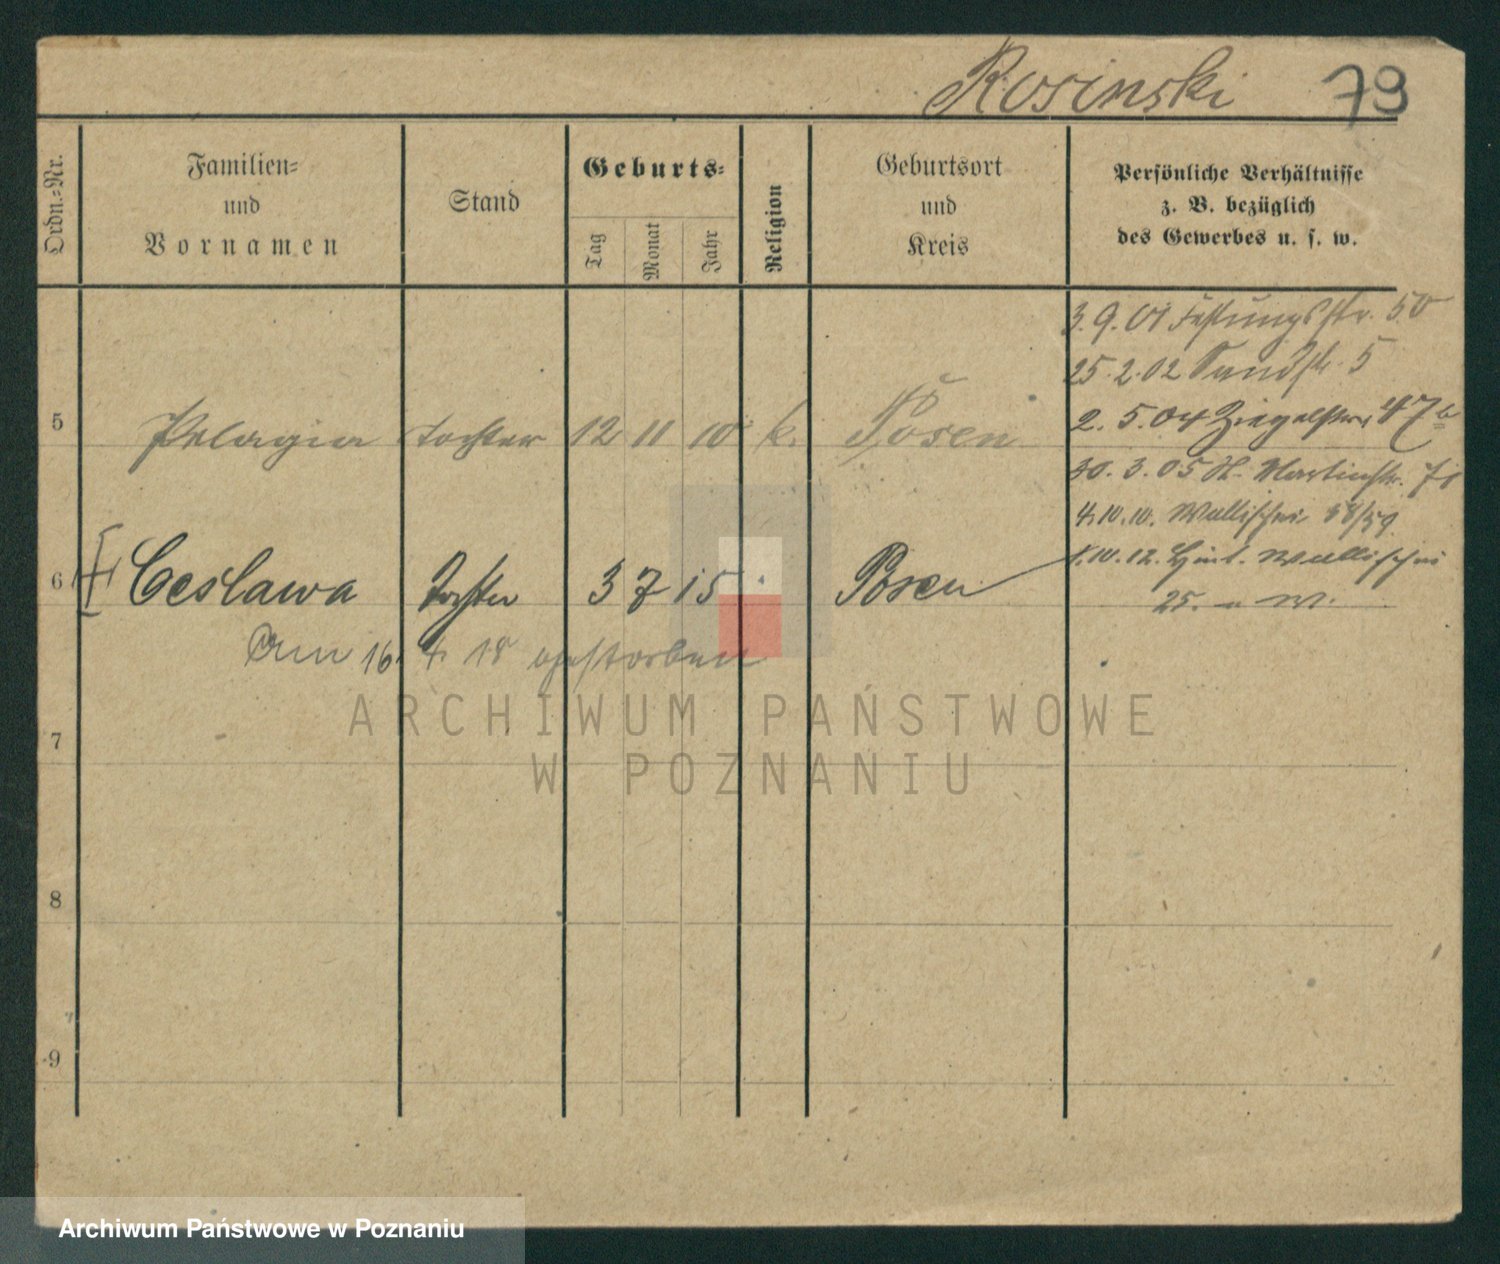 Rosinski 79
Ordn.-Nr.
Familien-
und
Vornamen
Stand
Geburts-
Tag
Monat
Jahr
Religion
Geburtsort
und
Kreis
Persönliche Verhältnisse
z. B. bezüglich
des Gewerbes u. s. w.
3. 9. 01 Festungsstr. 50
25. 2. 02 Sandstr. 5
2. 5. 04 Ziegelstr. 47b
5 Pelagia Tochter 12 11 10 k. Posen
30. 3. 05 St. Martinstr.
4. 10. 10. Wallischei 58/59
6 Ceslawa Tochter 3 7 15 Posen
1. 10. 12. Hint. Wallischei
25.
Am 16. 4. 18 gestorben
ARCHIWUM PAŃSTWOWE
W POZNANIU
7
8
9
Archiwum Państwowe w Poznaniu